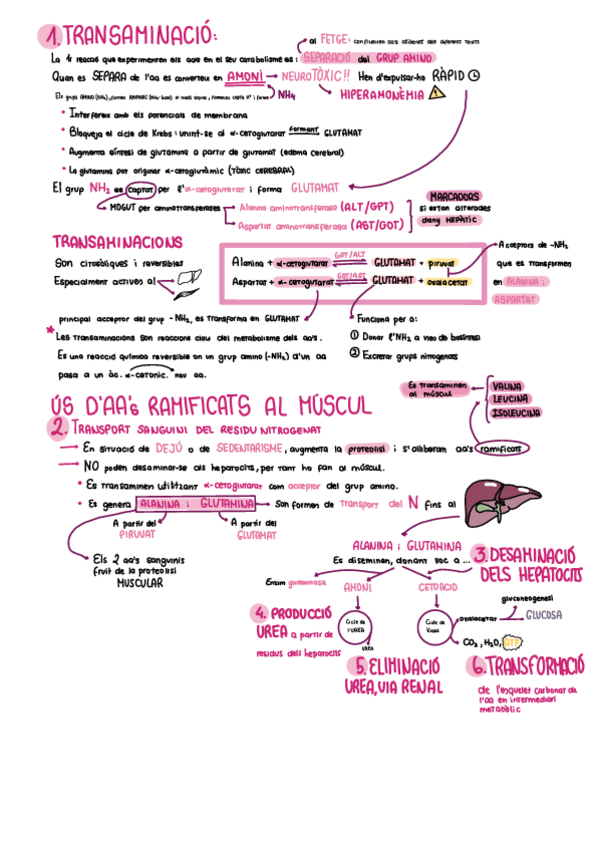 1. TRANSAMINACIÓ:
al FETGE: conflueixen aa's alliberats dels diferents teixits
La 1r reacció que experimenten els aa's en el seu catabolisme és: SEPARACIÓ del GRUP AMINO
Quan es SEPARA de l'aa es converteix en AMONI → NEUROTÒXIC!! Hem d'expulsar-ho RÀPID
NH4
HIPERAMONÈMIA
• Interfereix amb els potencials de membrana
• Bloqueja el cicle de Krebs: unint-se al α-cetoglutarat formant GLUTAMAT
• Augmenta síntesi de glutamina a partir de glutamat (edema cerebral)
• La glutamina pot originar α-cetoglutàmic (TÒXIC CEREBRAL)
El grup NH2 es captat per l'α-cetoglutarat i forma GLUTAMAT
MOGUT per aminotransferases
Alanina aminotransferasa (ALT/GPT)
Aspartat aminotransferasa (AST/GOT)
MARCADORS
si estan alterades
dany HEPÀTIC
TRANSAMINACIONS
Són citosòliques i reversibles
Especialment actives al
Alanina + α-cetoglutarat GPT/ALT GLUTAMAT + piruvat
Aspartat + α-cetoglutarat GOT/AST GLUTAMAT + oxalacetat
Acceptors de -NH2
que es transformen
en ALANINA i
ASPARTAT
principal acceptor del grup -NH2, es transforma en GLUTAMAT
Funciona per a:
① Donar l'NH2 a vies de biosíntesi
② Excretar grups nitrogenats
* Les transaminacions són reaccions clau del metabolisme dels aa's.
És una reacció química reversible on un grup amino (-NH2) d'un aa
passa a un àc. α-cetònic. nou aa.
Es transaminen
al múscul
VALINA
LEUCINA
ISOLEUCINA
ÚS D'AA's RAMIFICATS AL MÚSCUL
2. TRANSPORT SANGUINI DEL RESIDU NITROGENAT
→ En situació de DEJÚ o de SEDENTARISME, augmenta la proteòlisi i s'alliberen aa's ramificats
→ NO poden desaminar-se als hepatòcits, per tant ho fan al múscul.
• Es transaminen utilitzant α-cetoglutarat com acceptor del grup amino.
• Es genera ALANINA i GLUTAMINA → Són formes de transport del N fins al
A partir del
PIRUVAT
A partir del
GLUTAMAT
Els 2 aa's sanguinis
fruit de la proteòlisi
MUSCULAR
ALANINA i GLUTAMINA
Es diseminen, donant lloc a ...
3. DESAMINACIÓ
DELS HEPATÒCITS
Enzim glutaminasa
AMONI
CETOÀCID
gluconeogenesi
4. PRODUCCIÓ
UREA a partir de
residus dels hepatòcits
Cicle de
l'UREA
urea
Cicle de
Krebs
oxalacetat
GLUCOSA
CO2, H2O, ATP
5. ELIMINACIÓ
UREA, VIA RENAL
6. TRANSFORMACIÓ
de l'esquelet carbonat de
l'aa en intermediari
metabòlic